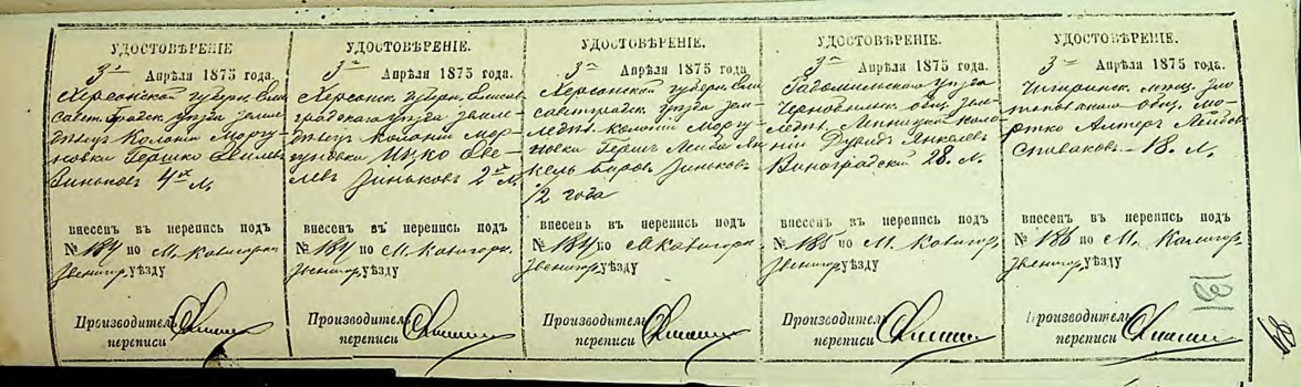 УДОСТОВѢРЕНІЕ
3го Апрѣля 1875 года.
Херсонской губерн. Ели
саветградск. уѣзда земле
дѣлецъ Колоніи Моргу
новки Гершко Овшіевъ
Зиньковъ 4хъ л.
внесенъ въ перепись подъ
№ 184 по М.
Звенигор. уѣзду
Производитель
переписи
УДОСТОВѢРЕНІЕ.
3го Апрѣля 1875 года.
Херсонск. губерн. Елисавет
градскаго уѣзда земле-
дѣлецъ Колоніи Мор-
гуновки Ицко Ове-
левъ Зиньковъ 2хъ л.
внесенъ въ перепись подъ
№ 184 по М.
Звенигор. уѣзду
Производитель
переписи
УДОСТОВѢРЕНІЕ.
3го Апрѣля 1875 года
Херсонской губерн. Ели
саветградск. уѣзда зем-
ледѣл. колоніи Моргу-
новки Гершъ Лейба Ян
кель Зиньковъ
1/2 года
внесенъ въ перепись подъ
№ 184 по М.
Звенигор. уѣзду
Производитель
переписи
УДОСТОВѢРЕНІЕ.
3го Апрѣля 1875 года.
Радомысльскаго уѣзда
Чернобыльск. общ. зем-
ледѣл. коло-
ніи Дувидъ Янкелевъ
Виноградскій 28. л.
внесенъ въ перепись подъ
№ 185 по М.
Звенигор. уѣзду
Производитель
переписи
УДОСТОВѢРЕНІЕ.
3го Апрѣля 1875 года.
Чигиринск. мѣщ. Зло
опольскаго общ. Мо-
ртко Алтеръ Лейбов
Спиваковъ 18. л.
внесенъ въ перепись подъ
№ 186 по М.
Звенигор. уѣзду
Производитель
переписи